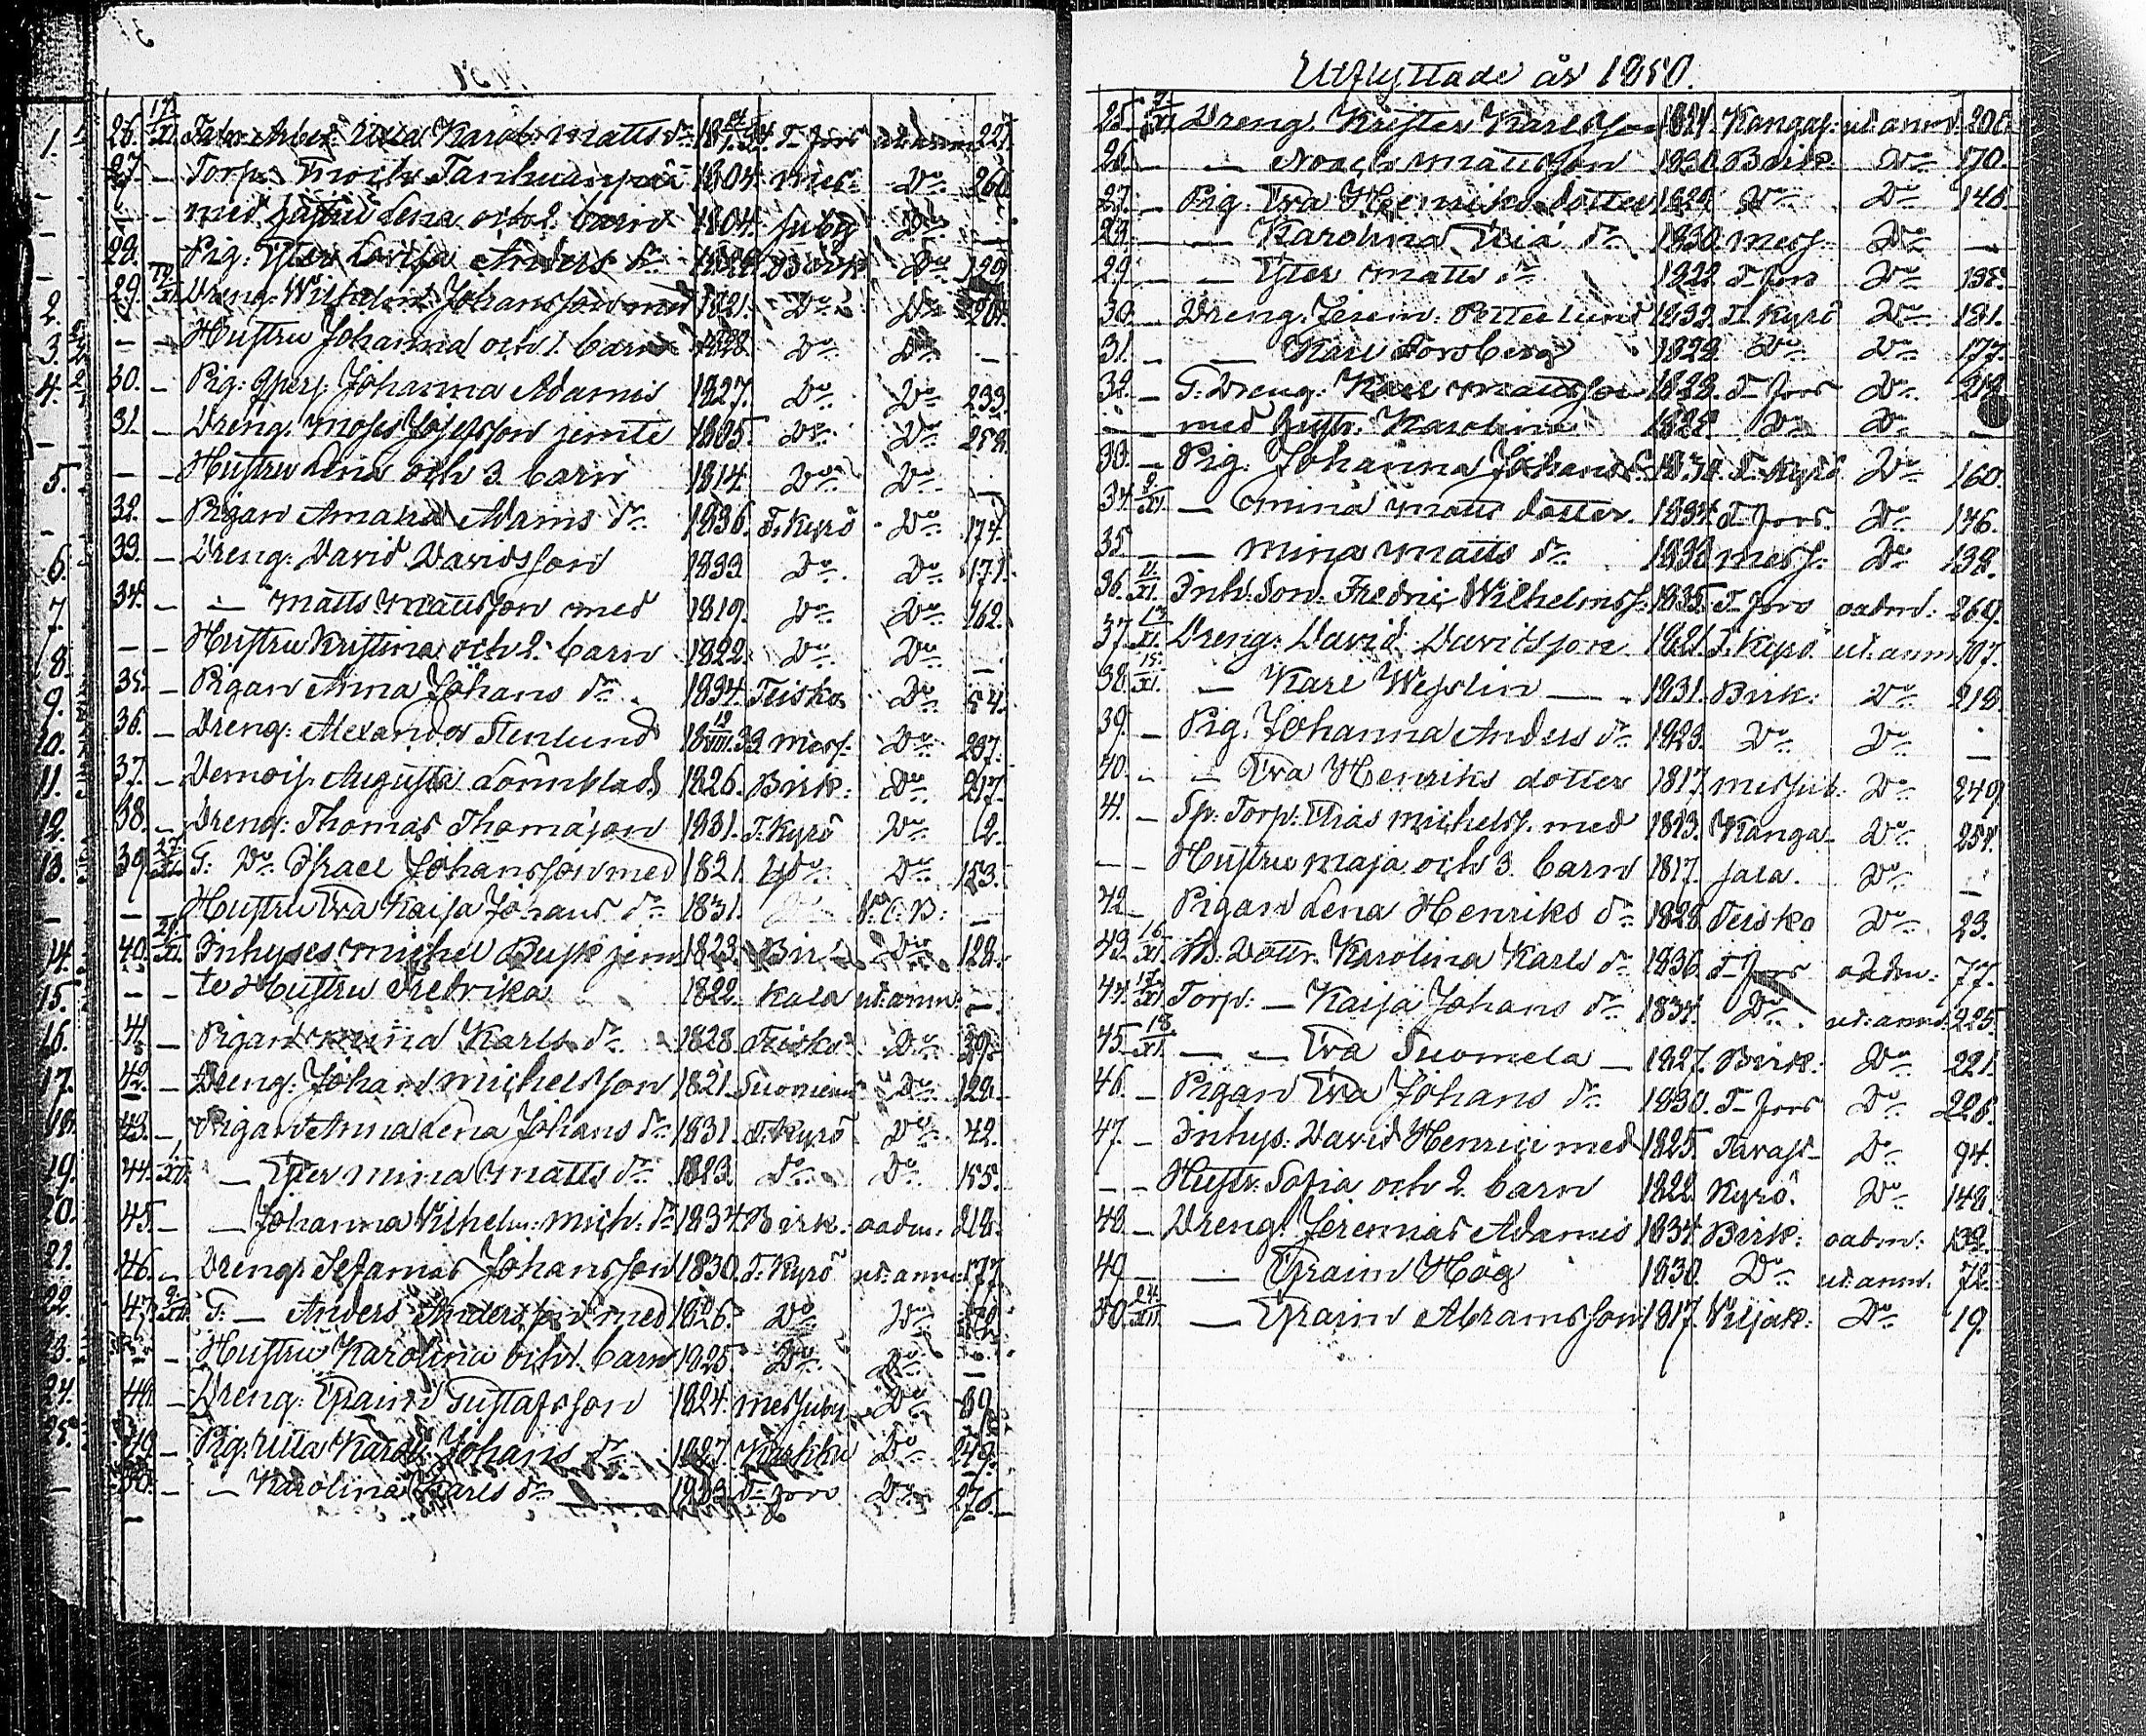 26. 17/XI. Fabr. Arbet. Ulla Karol. Matts dr. T. Fors ut. anm. 227.
27. — Torp. Enoch Tanhuanpää 1804. Mes- Do 260
— — med hustru Lena och 2. barn 1804. suby Do —
28. — Pig: Ester Lovisa Anders dr. 1828. Birk. Do 129
29. Dreng. Wilhelm Johansson med 1821. Do Do 201.
— — Hustru Johanna och 1. barn 1828. Do Do —
30. — Pig: Johanna Adams 1827. Do Do 233.
31. — Dreng. Moses Josefsson jemte 1805. Do Do 258.
— — Hustru Lena och 3. barn 1814. Do Do —
32. — Pigan Amanda Adams dr. 1836. T. Kyrö Do 177.
33. — Dreng: David Davidsson 1833 Do Do 171.
34. — — Matts Mattsson med 1819. Do Do 162.
— — Hustru Kristina och 2. barn 1822. Do Do —
35. — Pigan Anna Johans dr. 1834. Teisko Do 54.
36. — Dreng: Alexander Stenlund 18 19/VIII. 33. Mess: Do 237.
37. — Demois. Augusta Lönnblad 1826. Birk: Do 217.
38. — Dreng: Thomas Thomasson 1831. T. Kyrö Do 2.
39. T: Do Israel Johansson med 1821. Do Do 153.
— Hustru Eva Kaisa Johans dr. 1831. —
40. 29/XI. Inhyses Michel Busk jem 1823. Bir- Do 128.
— — te Hustru Fredrika 1822. kala ut: anm: —
41. — Pigan Mina Karls dr. 1828. Teisko Do 39.
42. — Dreng: Johan Michelsson 1821. Suoniemi Do 128.
43. — Pigan Anna Lena Johans dr. 1831. T. Kyrö Do 42.
44. 1/XII. — Ester Mina Matts dr. 1823. Do Do 155.
45. — — Johanna Vilhelm: Mich: dr. 1834. Birk: oadm. 218.
46. — Dreng: Johansson 1830. T. Kyrö ut: anm: 177.
47. T: — Anders Andersson med 1826. Do Do
— — Hustru Karolina och 1. barn 1825. Do Do —
48. — Dreng: Efraim Gustafsson 1824. Messuby Do 89
49. — Pig: Ulla Karol: Johans dr. 1827. Karkku Do 249.
50. — — Karolina Karls dr. 1833. T. Fors Do 276.
Utflyttade år 1850.
25. Dreng. Krister Karlsson 1824. Kangas: ut. anm. 200.
26. — — Noach Mattsson 1830. Birk: Do 170.
27. — Pig: Eva Henriks dotter 1829. Do Do 146.
28. — — Karolina Elia dr. 1830. Mess: Do —
29. — — Ester Matts dr. 1822. T. Fors Do 135.
30. — Dreng. Jerem: Petterlund 1832. T. Kyrö Do 181.
31. — — Karl Forsberg 1829. Do Do 177.
32. — T: Dreng: Karl Mattsson 1828. T. Fors Do 218.
— — med hustr. Karolina 1828. Do Do —
33. — Pig: Johanna Johans d. 1830. T. Kyrö Do 160.
34. 9/XI. — Mina Matts dotter. 1834. T. Fors Do 146.
35. — — Mina Matts dr. 1833. Mess: Do 138.
36. 11/XI. Inh: Son. Fredric Wilhelmss. 1835. T. Fors oadm: 269.
37. 13/XI. Dreng: David Davidsson 1821. T. Kyrö ut: anm. 107.
38. 15/XI. — Karl Wesslin — 1831. Birk: Do 218.
39. — Pig. Johanna Anders dr. 1823. Do Do —
40. — — Eva Henriks dotter 1817. Messub: Do 249.
41. — Sp: Torp: Elias Michelss. med 1813. Kanga- Do 254.
— — Hustru Maja och 3. barn 1817. sala. Do —
42. — Pigan Lena Henriks dr. 1828. Teisko Do 23.
43. 16/XI. Dottr. Karolina Karls dr. 1836. T. Fors oadm: 77.
44. 17/XI. Torp: — Kaija Johans dr. 1834. Do ut: anm. 225.
45. 18/XI. — — Eva Suomela — 1827. Birk: Do 221.
46. — Pigan Eva Johans dr. 1830. T. Fors Do 226.
47. — Inhys: David Henrici med 1825. Tavast- Do 94.
— — Hustr. Sofia och 2. barn 1822. Kyrö. Do 148.
48. — Dreng: Jeremias Adamis 1834. Birk: oadm: 139.
49. — — Efraim Hög 1830. Do ut: anm. 72.
50. 24/XII. — Efraim Abramsson 1817. Viljak: Do 19.